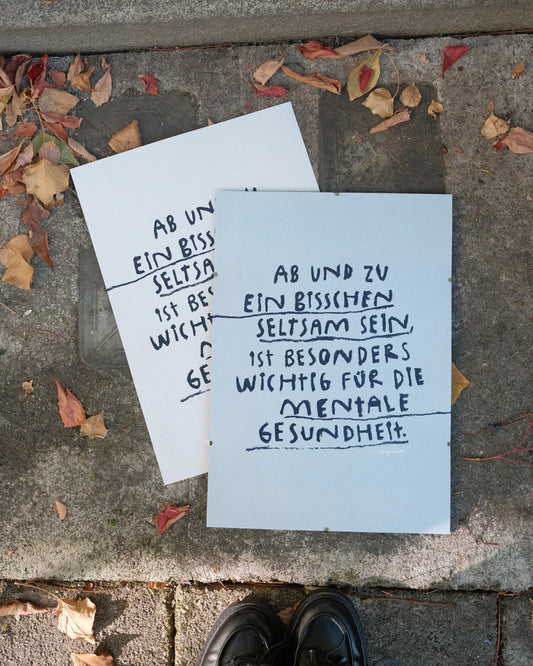 AB UN
EIN BISS
SELTSA
IST BES
WICHT
M
GES
AB UND ZU
EIN BISSCHEN
SELTSAM SEIN,
IST BESONDERS
WICHTIG FÜR DIE
MENTALE
GESUNDHEIT.